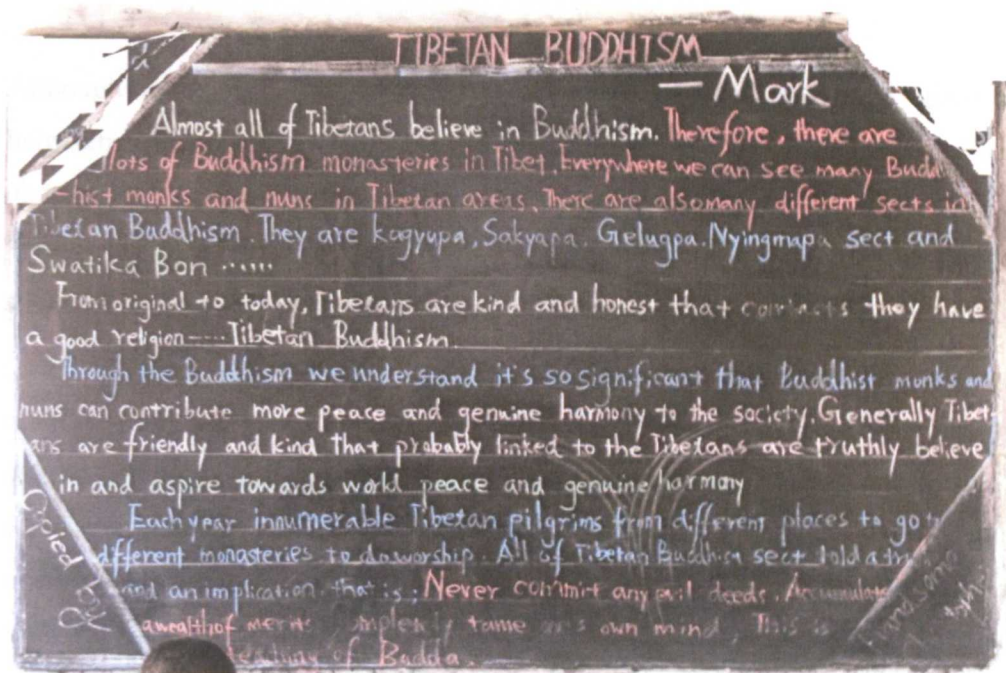 TIBETAN BUDDHISM
— Mark
Almost all of Tibetans believe in Buddhism. Therefore, there are
lots of Buddhism monasteries in Tibet. Everywhere we can see many Budd
-hist monks and nuns in Tibetan areas. There are also many different sects in
Tibetan Buddhism. They are kagyupa, Sakyapa, Gelugpa, Nyingmapa sect and
Swatika Bon ......
From original to today, Tibetans are kind and honest that contacts they have
a good religion---- Tibetan Buddhism.
Through the Buddhism we understand it's so significant that Buddhist monks and
nuns can contribute more peace and genuine harmony to the society. Generally Tibet-
ans are friendly and kind that probably linked to the Tibetans are truthly believe
in and aspire towards world peace and genuine harmony
Each year innumerable Tibetan pilgrims from different places to go to
different monasteries to do worship. All of Tibetan Buddhism sect told a
and an implication that is: Never commit any evil deeds. Accumulate
a wealth of merits tame own mind. This is
of Budda.
Copied by